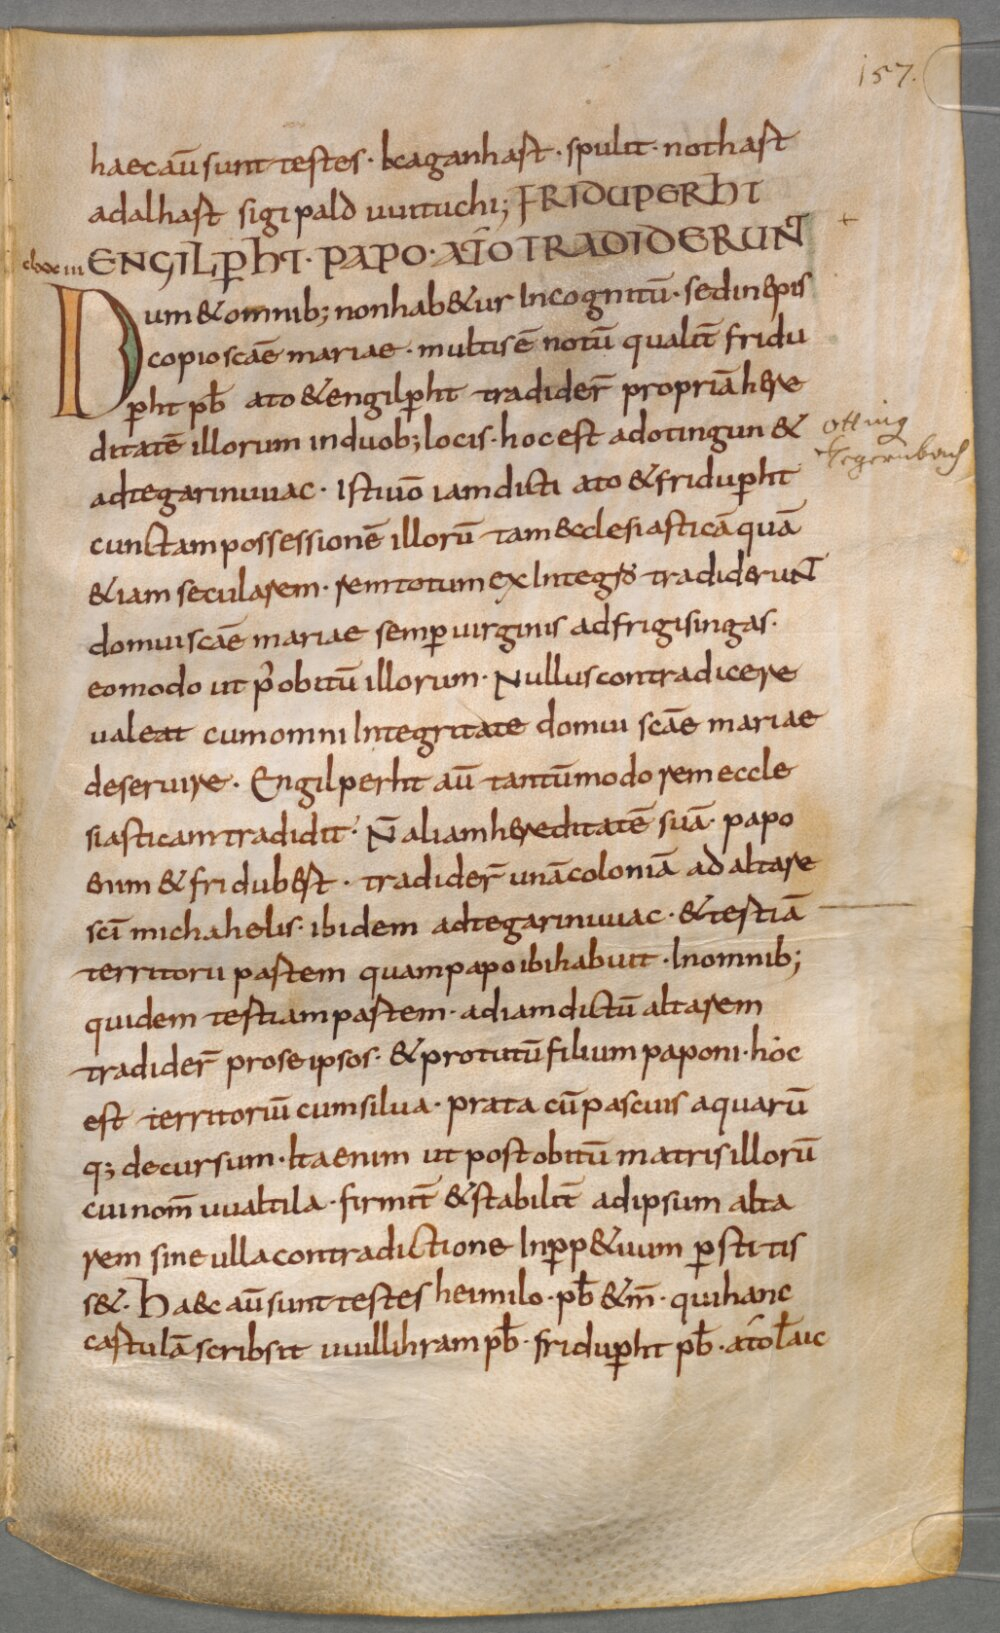 157.
haec aū sunt testes · kaganhast · spulit · nothast
adalhast sigipald uuituchi; FRIDUPERHT
ENGILP̄HT · PAPO · ATO TRADIDERUNT
Dum & omnib; non hab&ur Incognitū · sed in epis
copio scāe mariae · multis ē notū qualit̄ fridu
p̄ht pb̄ ato & engilp̄ht tradider̄ propriā here
ditatē illorum in duob; locis · hoc est ad otingun &
otting
ad tegarinuuac · Istiuō iam dicti ato & fridup̄ht
tegernbach
cunctam possessionē illorū tam ecclesiasticā quā
&iam secularem · rem totum ex Integro tradiderunt
domui scāe mariae semp̄ uirginis ad frigisingas ·
eo modo ut p̄ obitū illorum · Nullus contradicere
ualeat cum omni Integritate domui scāe mariae
deseruire · Engilperht aū tantūmodo rem eccle
siasticam tradidit · N̄ aliam hereditatē suā · papo
enim & fridubest · tradider̄ unā coloniā ad altare
sc̄i michahelis · ibidem ad tegarinuuac · & testiā
territorii partem quam papo ibi habuit · In omnib;
quidem testiam partem · ad iam dictū altarem
tradider̄ pro se ipsos · & pro tutū filium paponi · hoc
est territoriū cum silua · prata cū pascuis aquarū
q; decursum · Ita enim ut post obitū matris illorū
cui nom̄ uualtila · firmit̄ & stabilit̄ ad ipsum alta
rem sine ulla contradictione In p̄p&uum p̄stitis
s& · Haec aū sunt testes heimilo · pb̄ & m̄ · qui hanc
cartulā scribsit uuillihram pb̄ · fridup̄ht pb̄ · ato laic